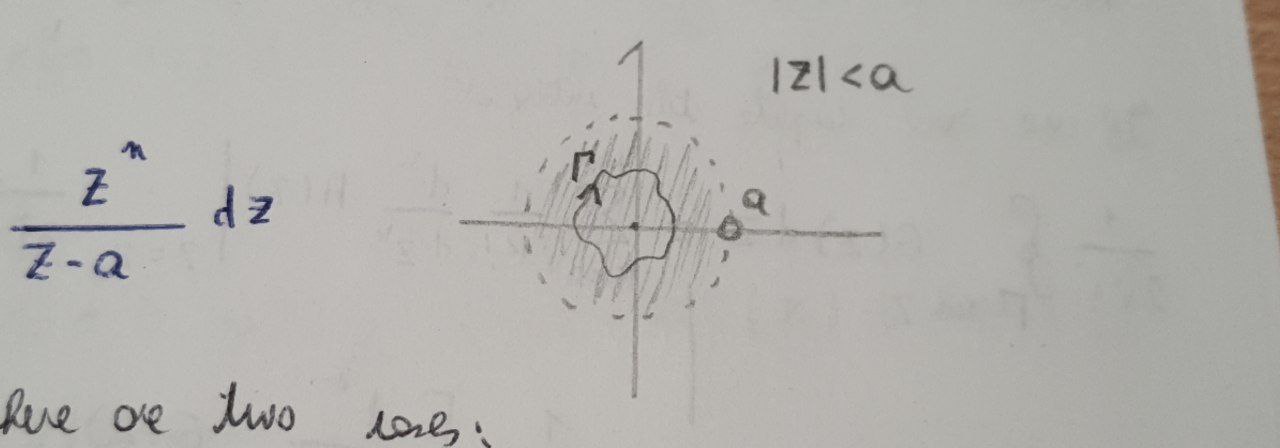 |z| < a
z^n
Γ
a
dz
z - a
here are two cases: